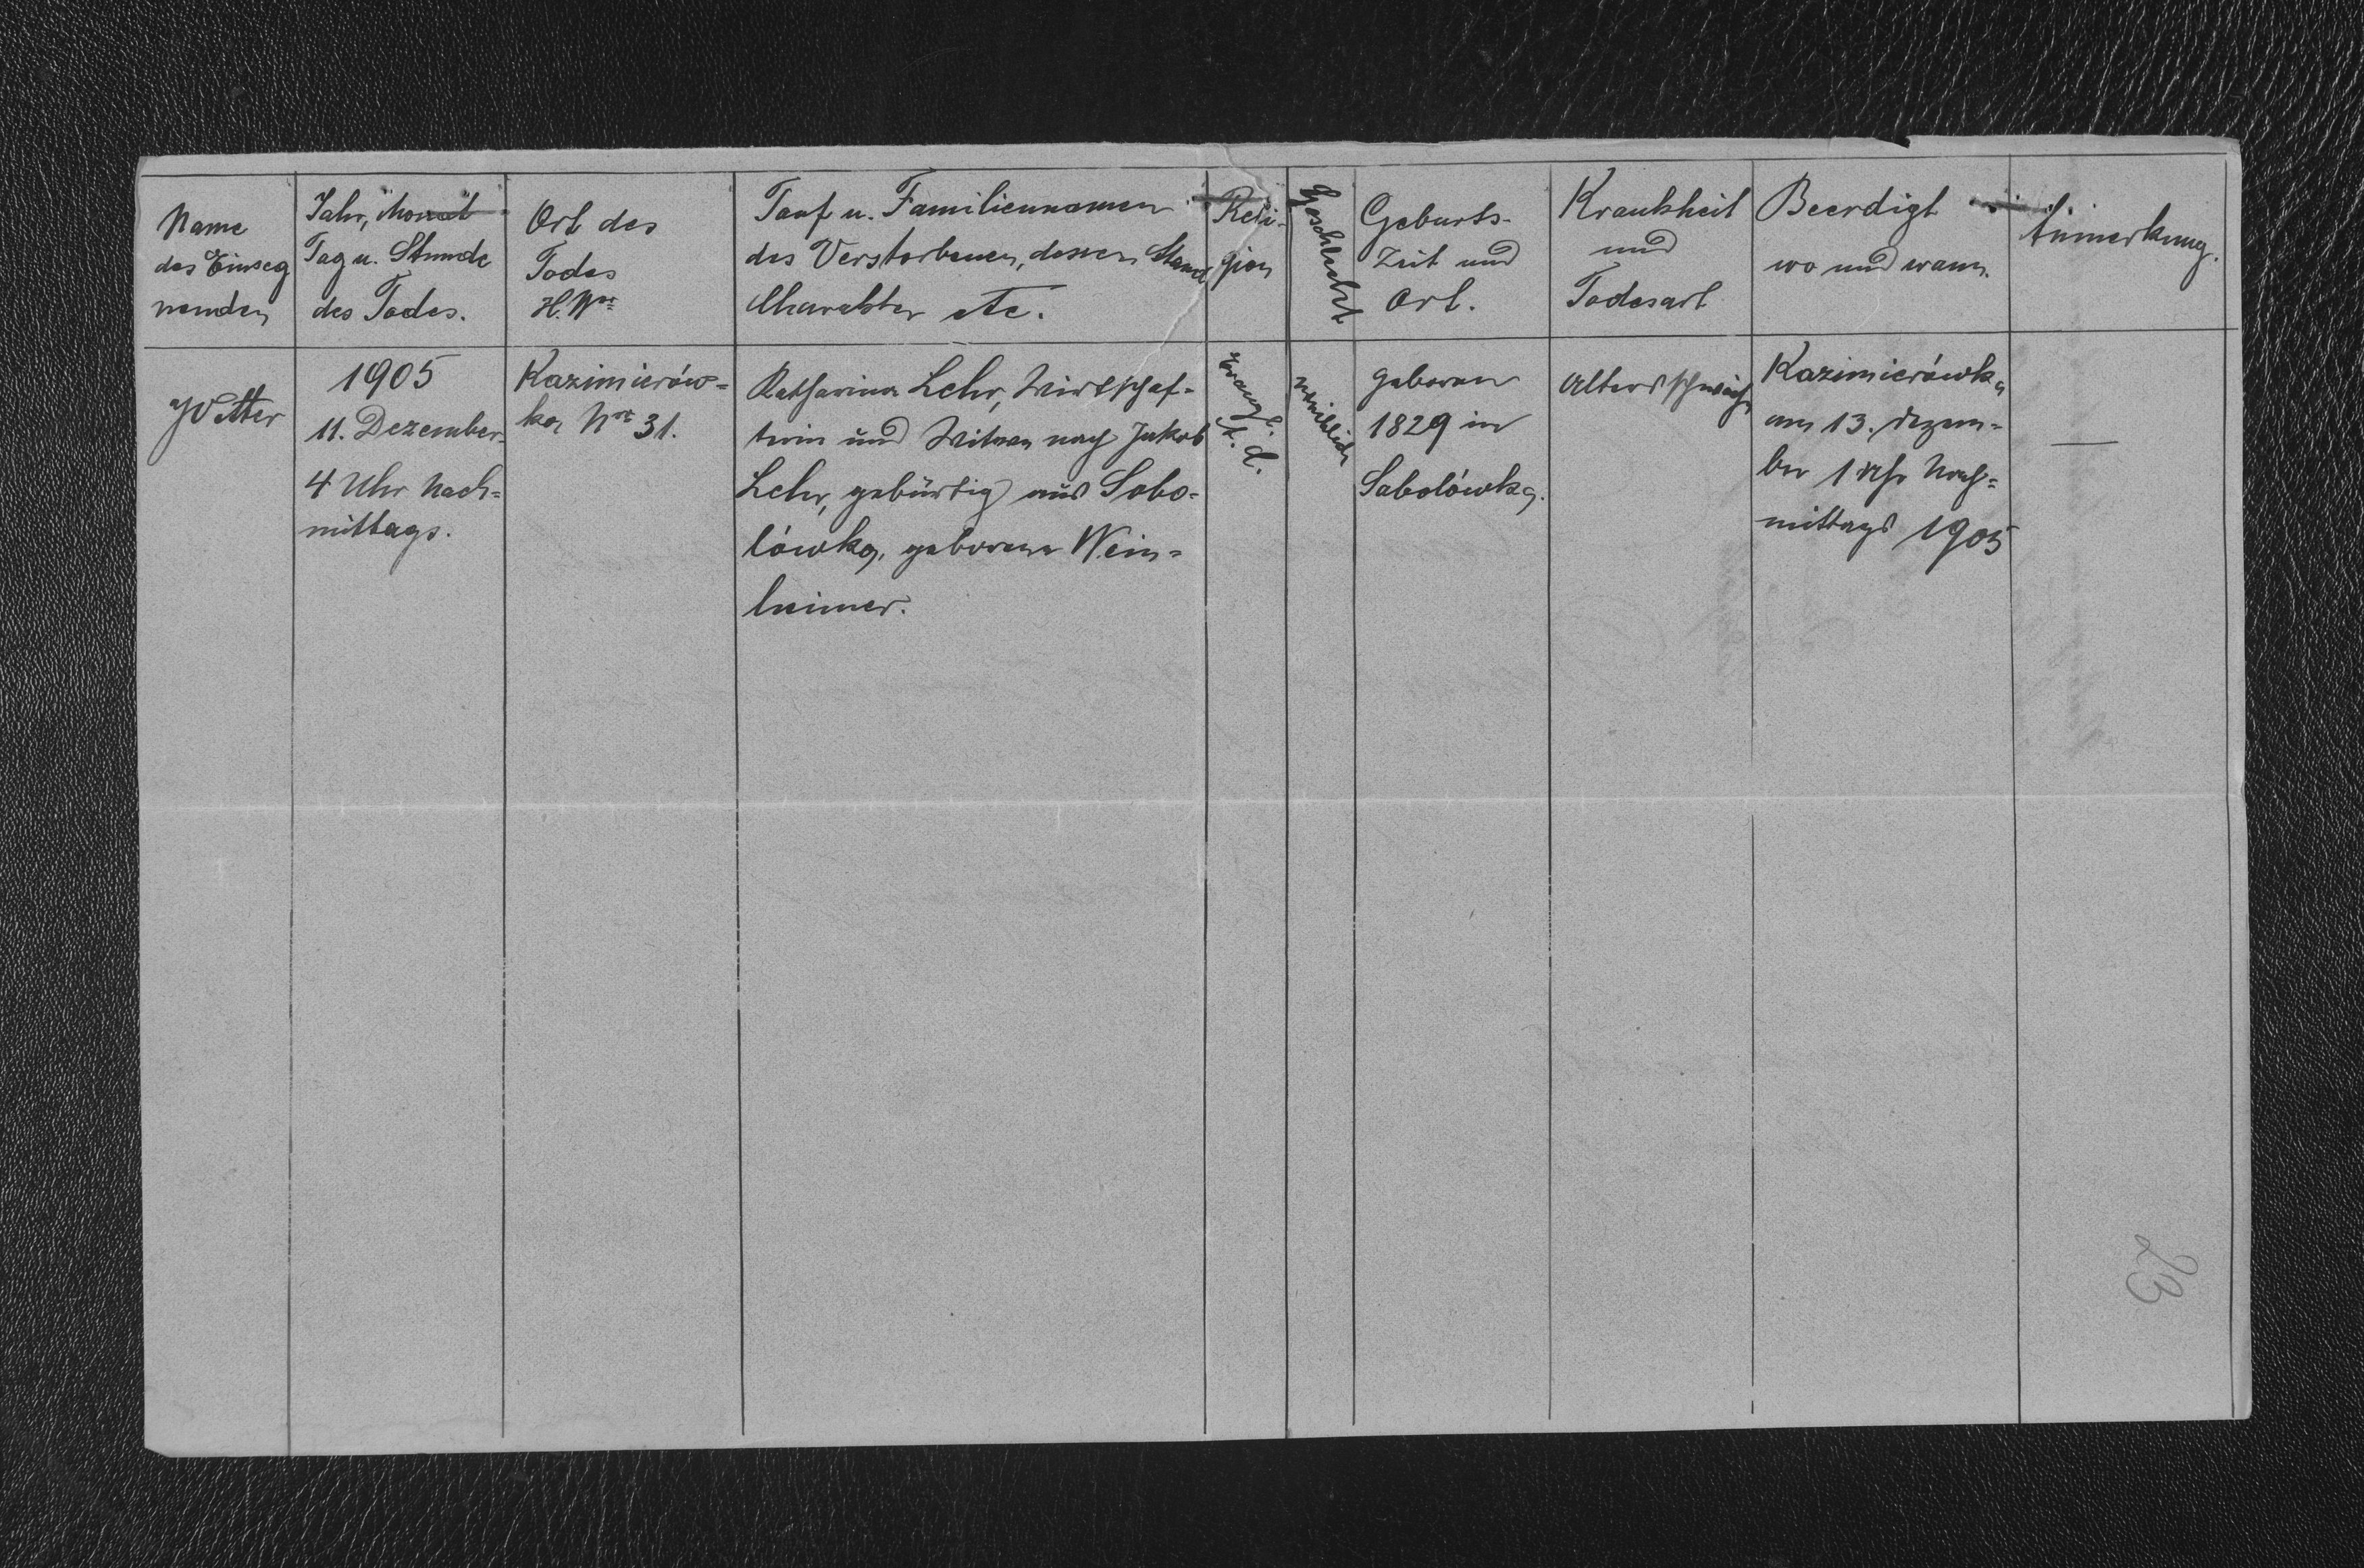 Name
des Einseg
nenden
Jahr, Monat
Tag u. Stunde
des Todes.
Ort des
Todes
H. Nro
Tauf u. Familiennamen
des Verstorbenen, dessen Stand
Charakter etc.
Reli-
gion
Geschlecht
Geburts-
Zeit und
Ort.
Krankheit
und
Todesart
Beerdigt
wo und wann.
Anmerkung.
Witter
1905
11. Dezember
4 Uhr Nach-
mittags.
Kazimierów-
ka Nro 31.
Katharina Lehr, Wirtschaf-
terin und Witwe nach Jakob
Lehr, gebürtig aus Sobo-
lówka, geborene Wein-
heimer.
evangl.
weiblich
geboren
1829 in
Sabolówka.
Altersschwäche
Kazimierówka
am 13. Dezem-
ber 1 Uhr Nach-
mittags 1905
23